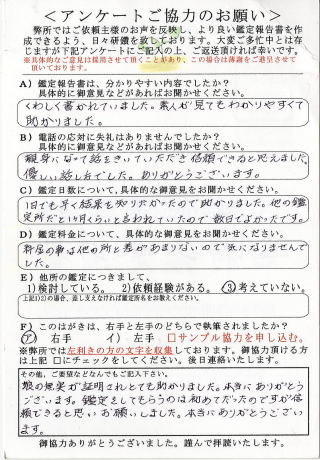 ＜アンケートご協力のお願い＞
弊所ではご依頼主様のお声を反映し、より良い鑑定報告書を作
成できるよう、日々研鑽を致しております。大変ご多忙中とは存
じますが下記アンケートにご記入の上、ご返送頂ければ幸いです。
※具体的なご意見は採用させて頂くことがあり、この場合は薄謝をご進呈させて
頂いております。
A）鑑定報告書は、分かりやすい内容でしたか？
具体的に御意見などがあればお聞かせください。
くわしく書かれていました。素人が見てもわかりやすくて
助かりました。
B）電話の応対に失礼はありませんでしたか？
具体的に御意見などがあればお聞かせください。
親身になって話をきいていただき信頼できると思えました。
優しい話し方でした。ありがとうございます。
C）鑑定日数について、具体的な御意見をお聞かせください。
1日でも早く結果を知りたかったので助かりました。他の鑑
定所だと1ヶ月くらいと言われていたので数日でよかったです。
D）鑑定料金について、具体的な御意見をお聞かせください。
料金の事は他の所と差があまりないので気になりませんで
した。
E）他所の鑑定につきまして、
1)検討している。 2)依頼経験がある。 ③考えていない。
上記1)2)の場合、差し支えなければ鑑定所名をお教えください。
F）このはがきは、右手と左手のどちらで執筆されましたか？
ア） 右手 イ） 左手 □サンプル協力を申し込む。
※弊所では左利きの方の文字を収集しております。御協力頂ける方
は上記 □にチェックをしてください。後日連絡いたします。
その他、ご要望などなんでもご記入下さい。
娘の無実が証明されとても助かりました。本当にありがとう
ございます。鑑定をしてもらうのは初めてだったのですが信
頼できると思いお願いしました。本当にありがとうござい
ます。
御協力ありがとうございました。謹んで拝読いたします。